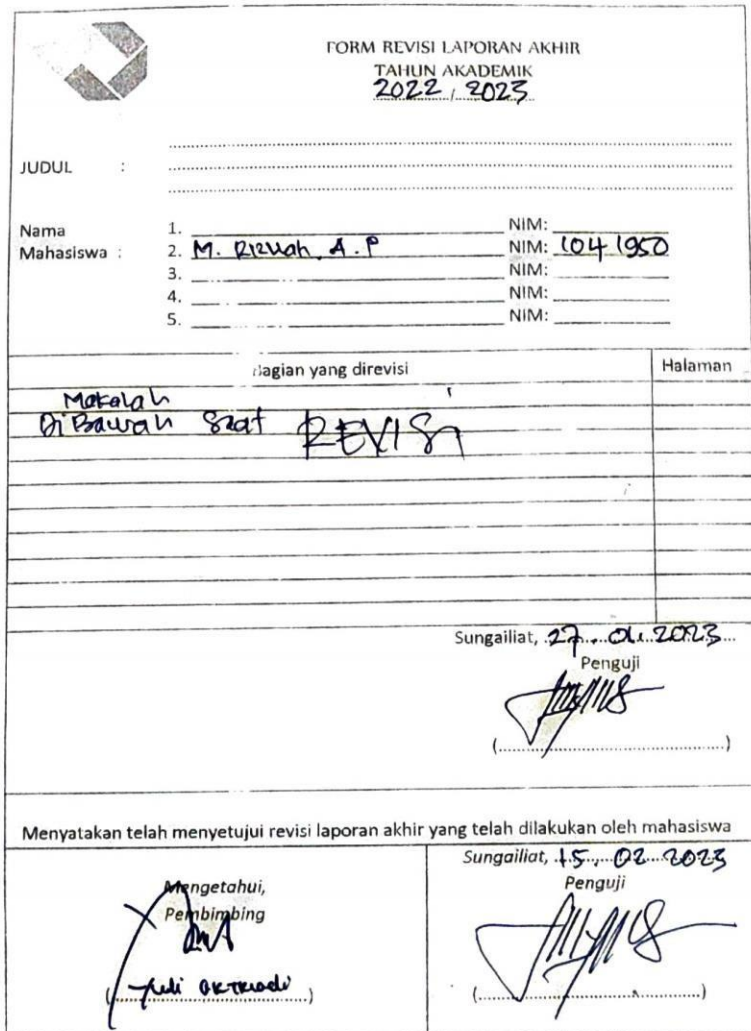 FORM REVISI LAPORAN AKHIR
TAHUN AKADEMIK
2022 / 2023
JUDUL :
Nama
Mahasiswa :
1. NIM:
2. M. Rizwah. A. P NIM: 1041950
3. NIM:
4. NIM:
5. NIM:
Bagian yang direvisi Halaman
Makalah
Di Bawah REVISI
Sungailiat, 27. 01. 2023
Penguji
(..............................)
Menyatakan telah menyetujui revisi laporan akhir yang telah dilakukan oleh mahasiswa
Mengetahui,
Pembimbing
(Yuli )
Sungailiat, 15. 02. 2023
Penguji
(..............................)